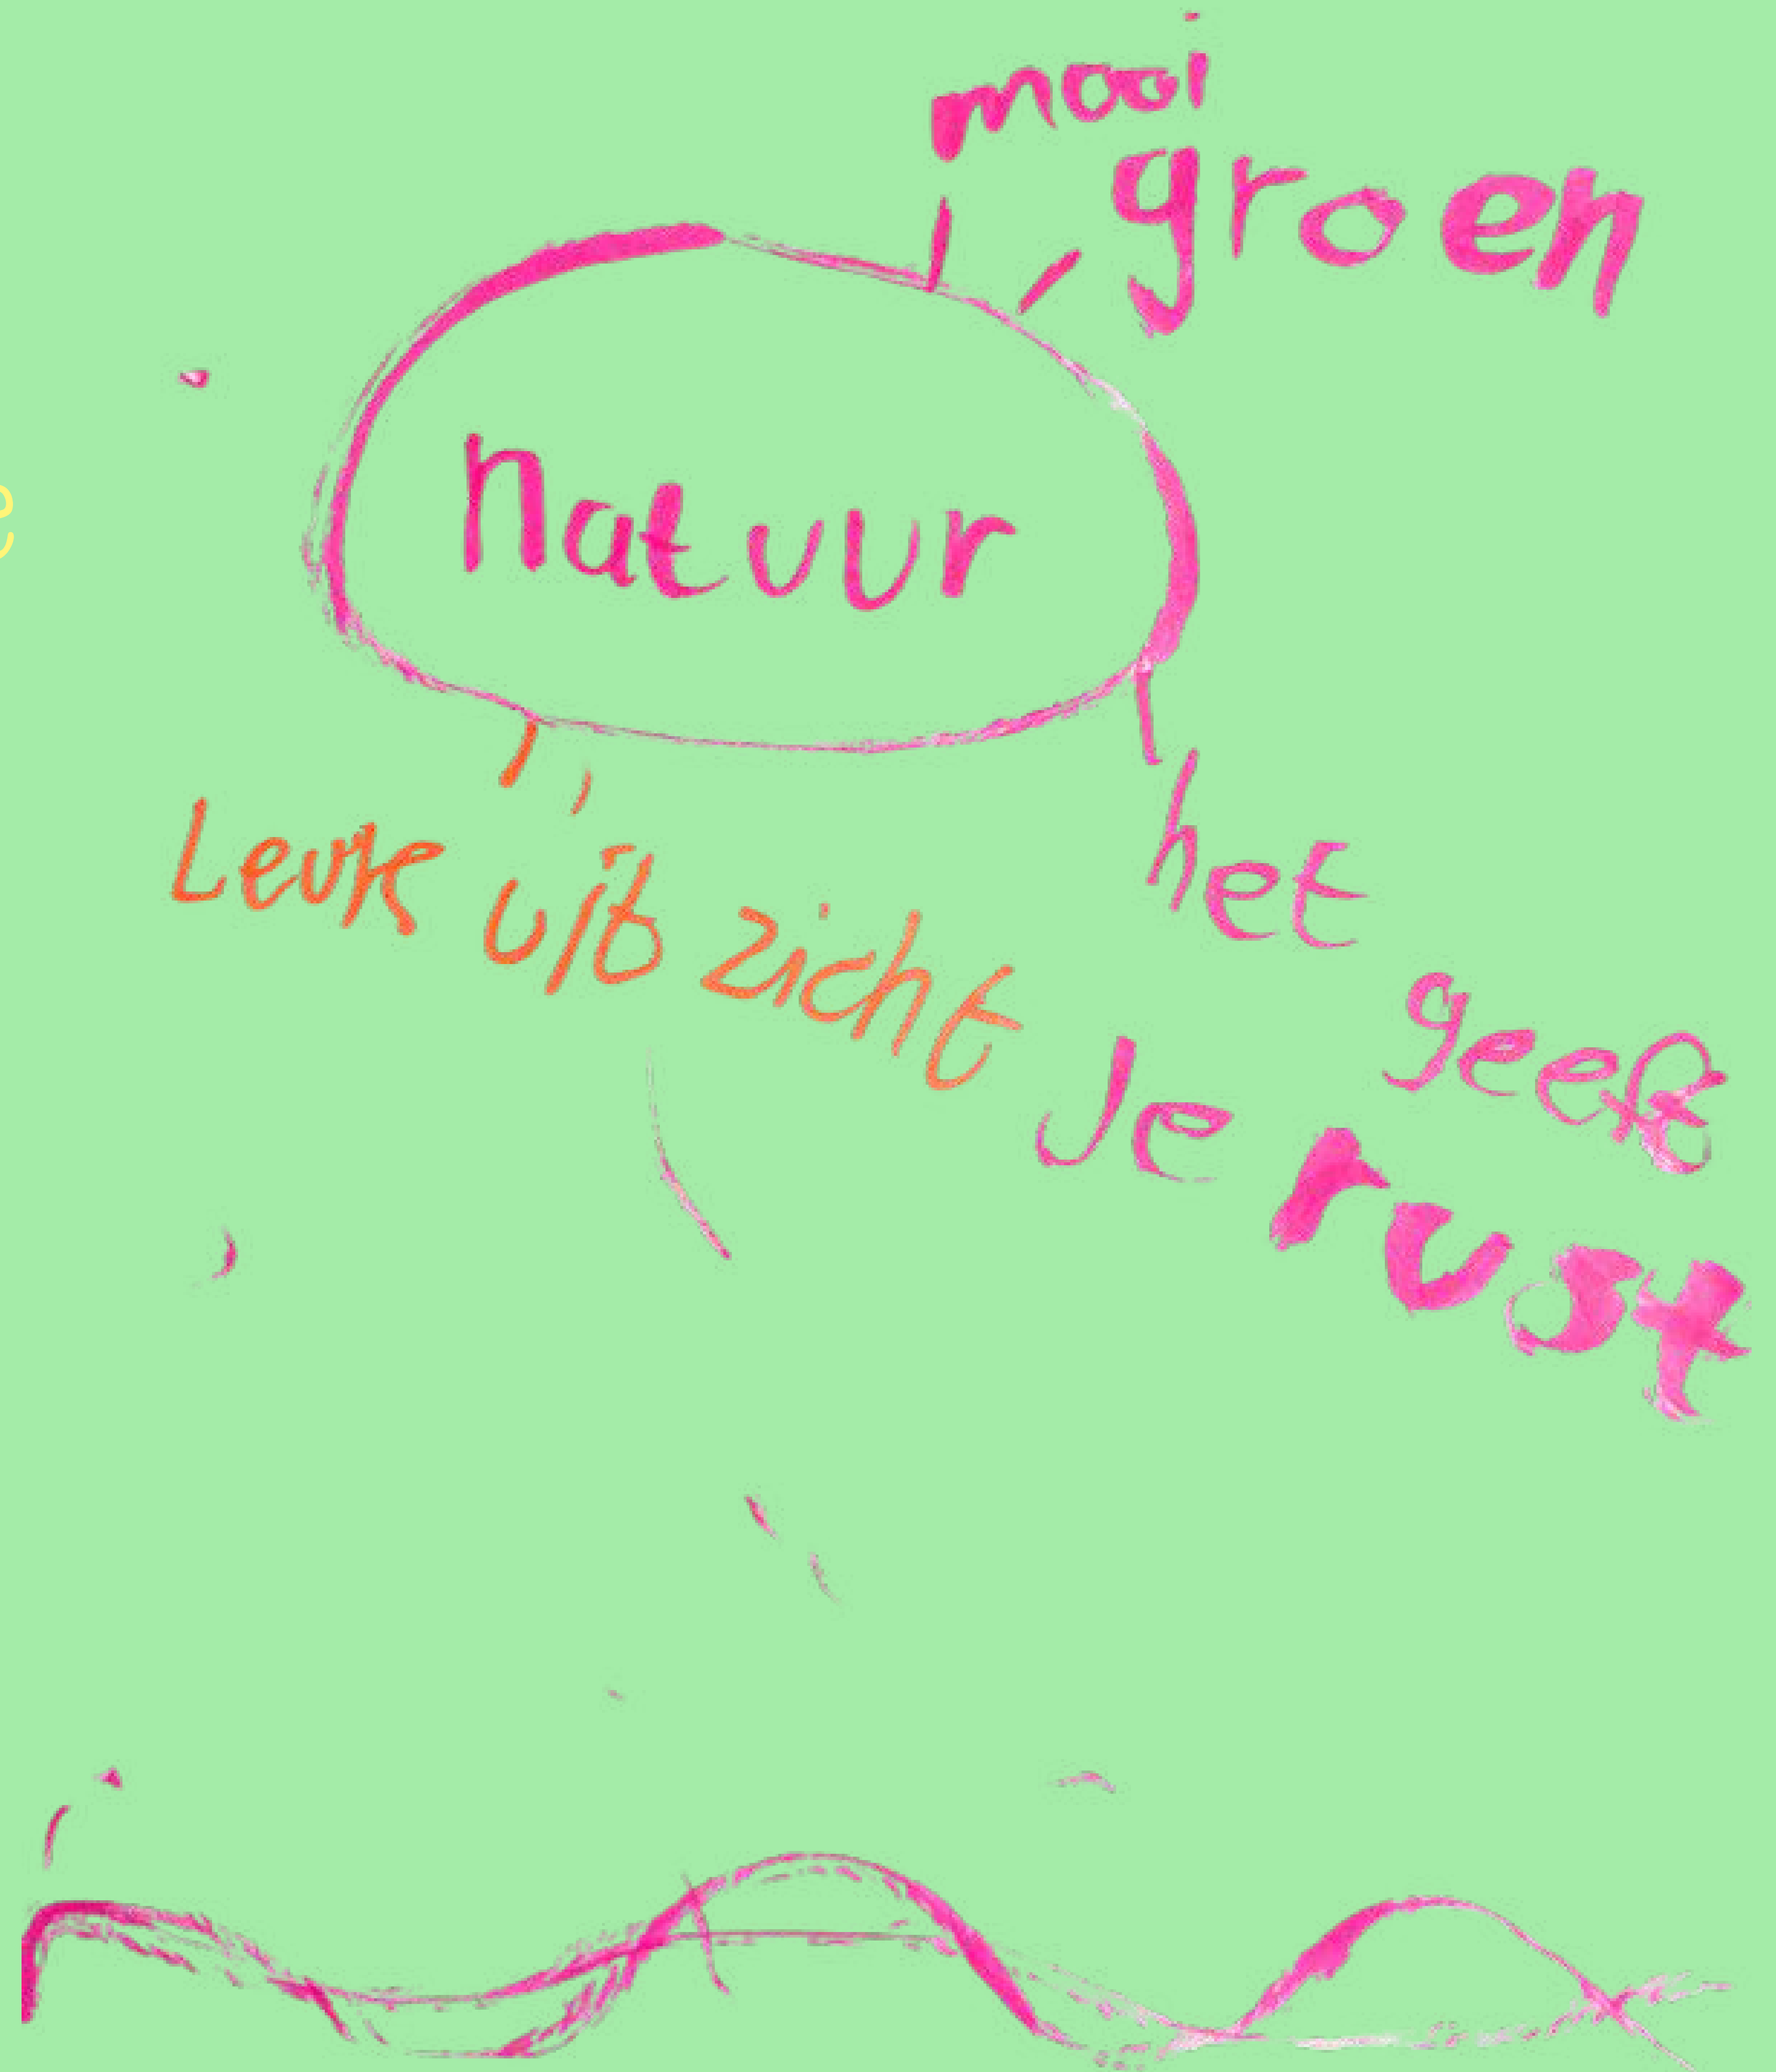 mooi
groen
natuur
Leuk uit zicht
het
geeft
Je rust